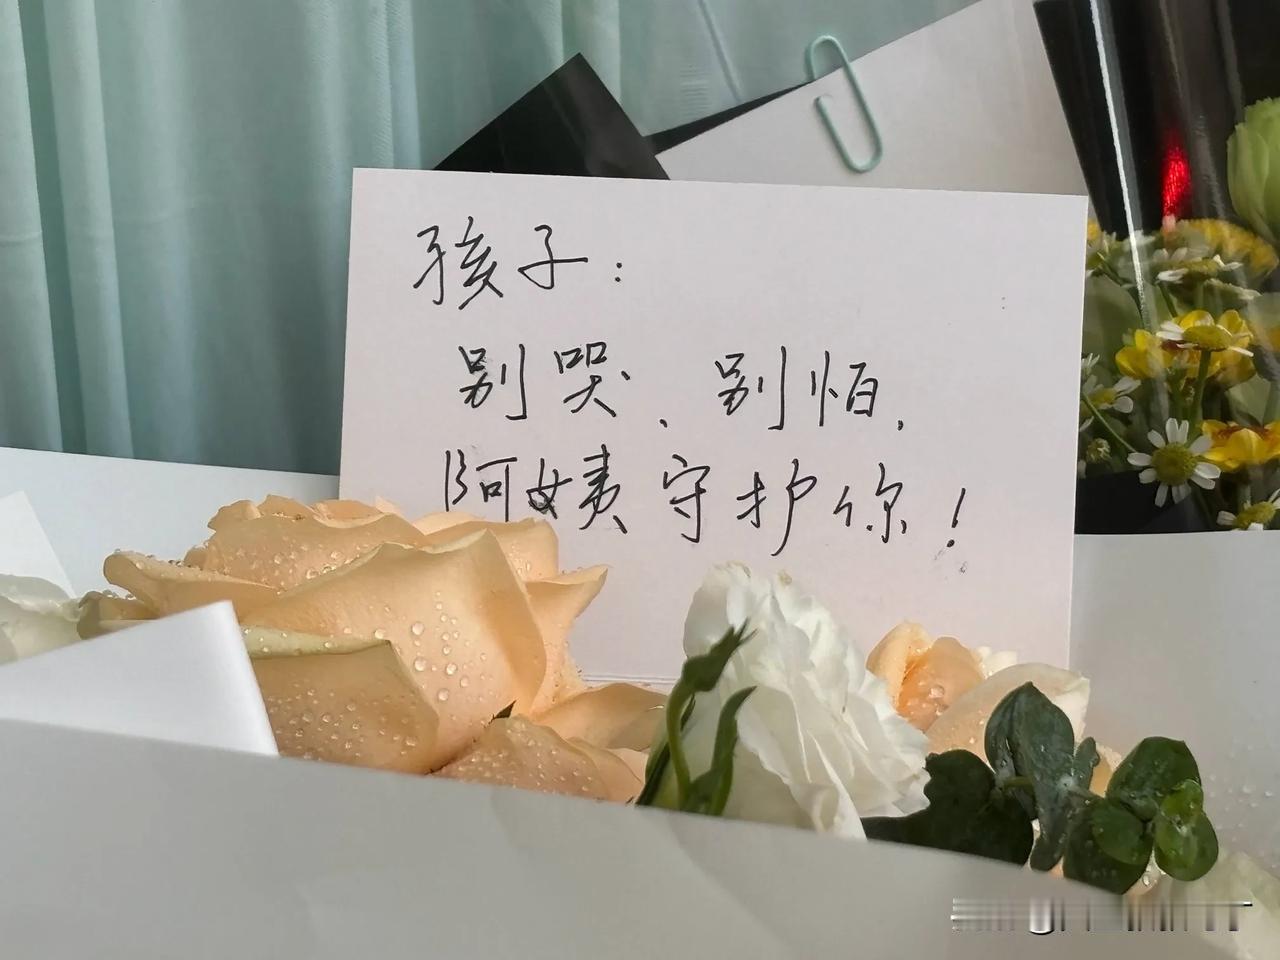 孩子：
别哭、别怕，
阿姨守护你！